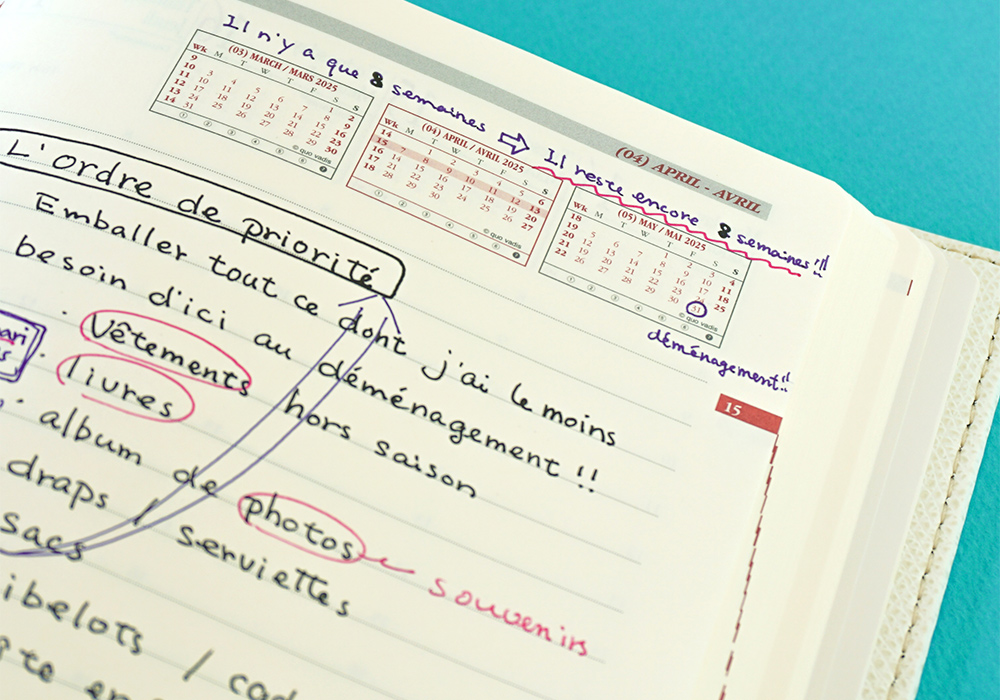 Il n'y a que 8 semaines ⇨ Il reste encore 8 semaines !!
(04) APRIL - AVRIL
(03) MARCH / MARS 2025
Wk M T W T F S S
9 1 2
10 3 4 5 6 7 8 9
11 10 11 12 13 14 15 16
12 17 18 19 20 21 22 23
13 24 25 26 27 28 29 30
14 31
© quo vadis
(04) APRIL / AVRIL 2025
Wk M T W T F S S
14 1 2 3 4 5 6
15 7 8 9 10 11 12 13
16 14 15 16 17 18 19 20
17 21 22 23 24 25 26 27
18 28 29 30
© quo vadis
(05) MAY / MAI 2025
Wk M T W T F S S
18 1 2 3 4
19 5 6 7 8 9 10 11
20 12 13 14 15 16 17 18
21 19 20 21 22 23 24 25
22 26 27 28 29 30 31
© quo vadis
déménagement !!
15
L'ordre de priorité
Emballer tout ce dont j'ai le moins
besoin d'ici au déménagement !!
· Vêtements hors saison
· livres
· album de photos souvenirs
draps / serviettes
sacs
ibelots / cad